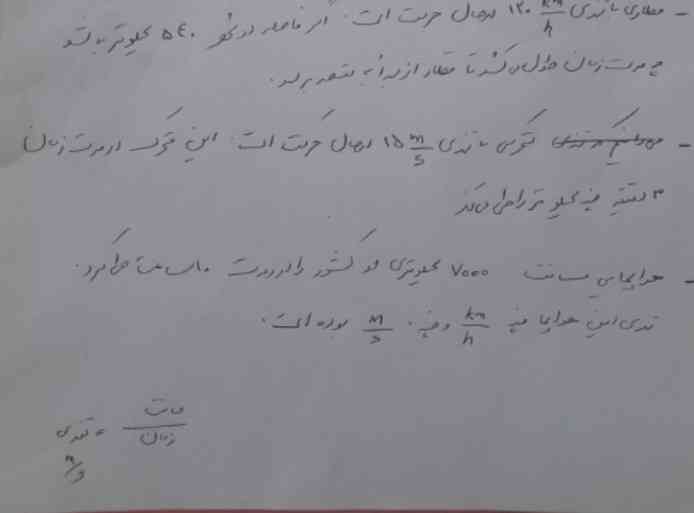 - قطاری با تندی ۱۲۰ km/h در حال حرکت است. اگر فاصله دو شهر ۵۴۰ کیلومتر باشد
چه مدت زمان طول می‌کشد تا قطار از مبدأ به مقصد برسد.
- متحرکی با تندی ۱۵ m/s در حال حرکت است. این متحرک در مدت زمان
۳ دقیقه چند کیلومتر را طی می‌کند
- هواپیمایی مسافت ۷۰۰۰ کیلومتری دو کشور را در مدت ساعت طی کرد.
تندی این هواپیما چند km/h و چند m/s بوده است.
مسافت
تندی =
زمان
m/s